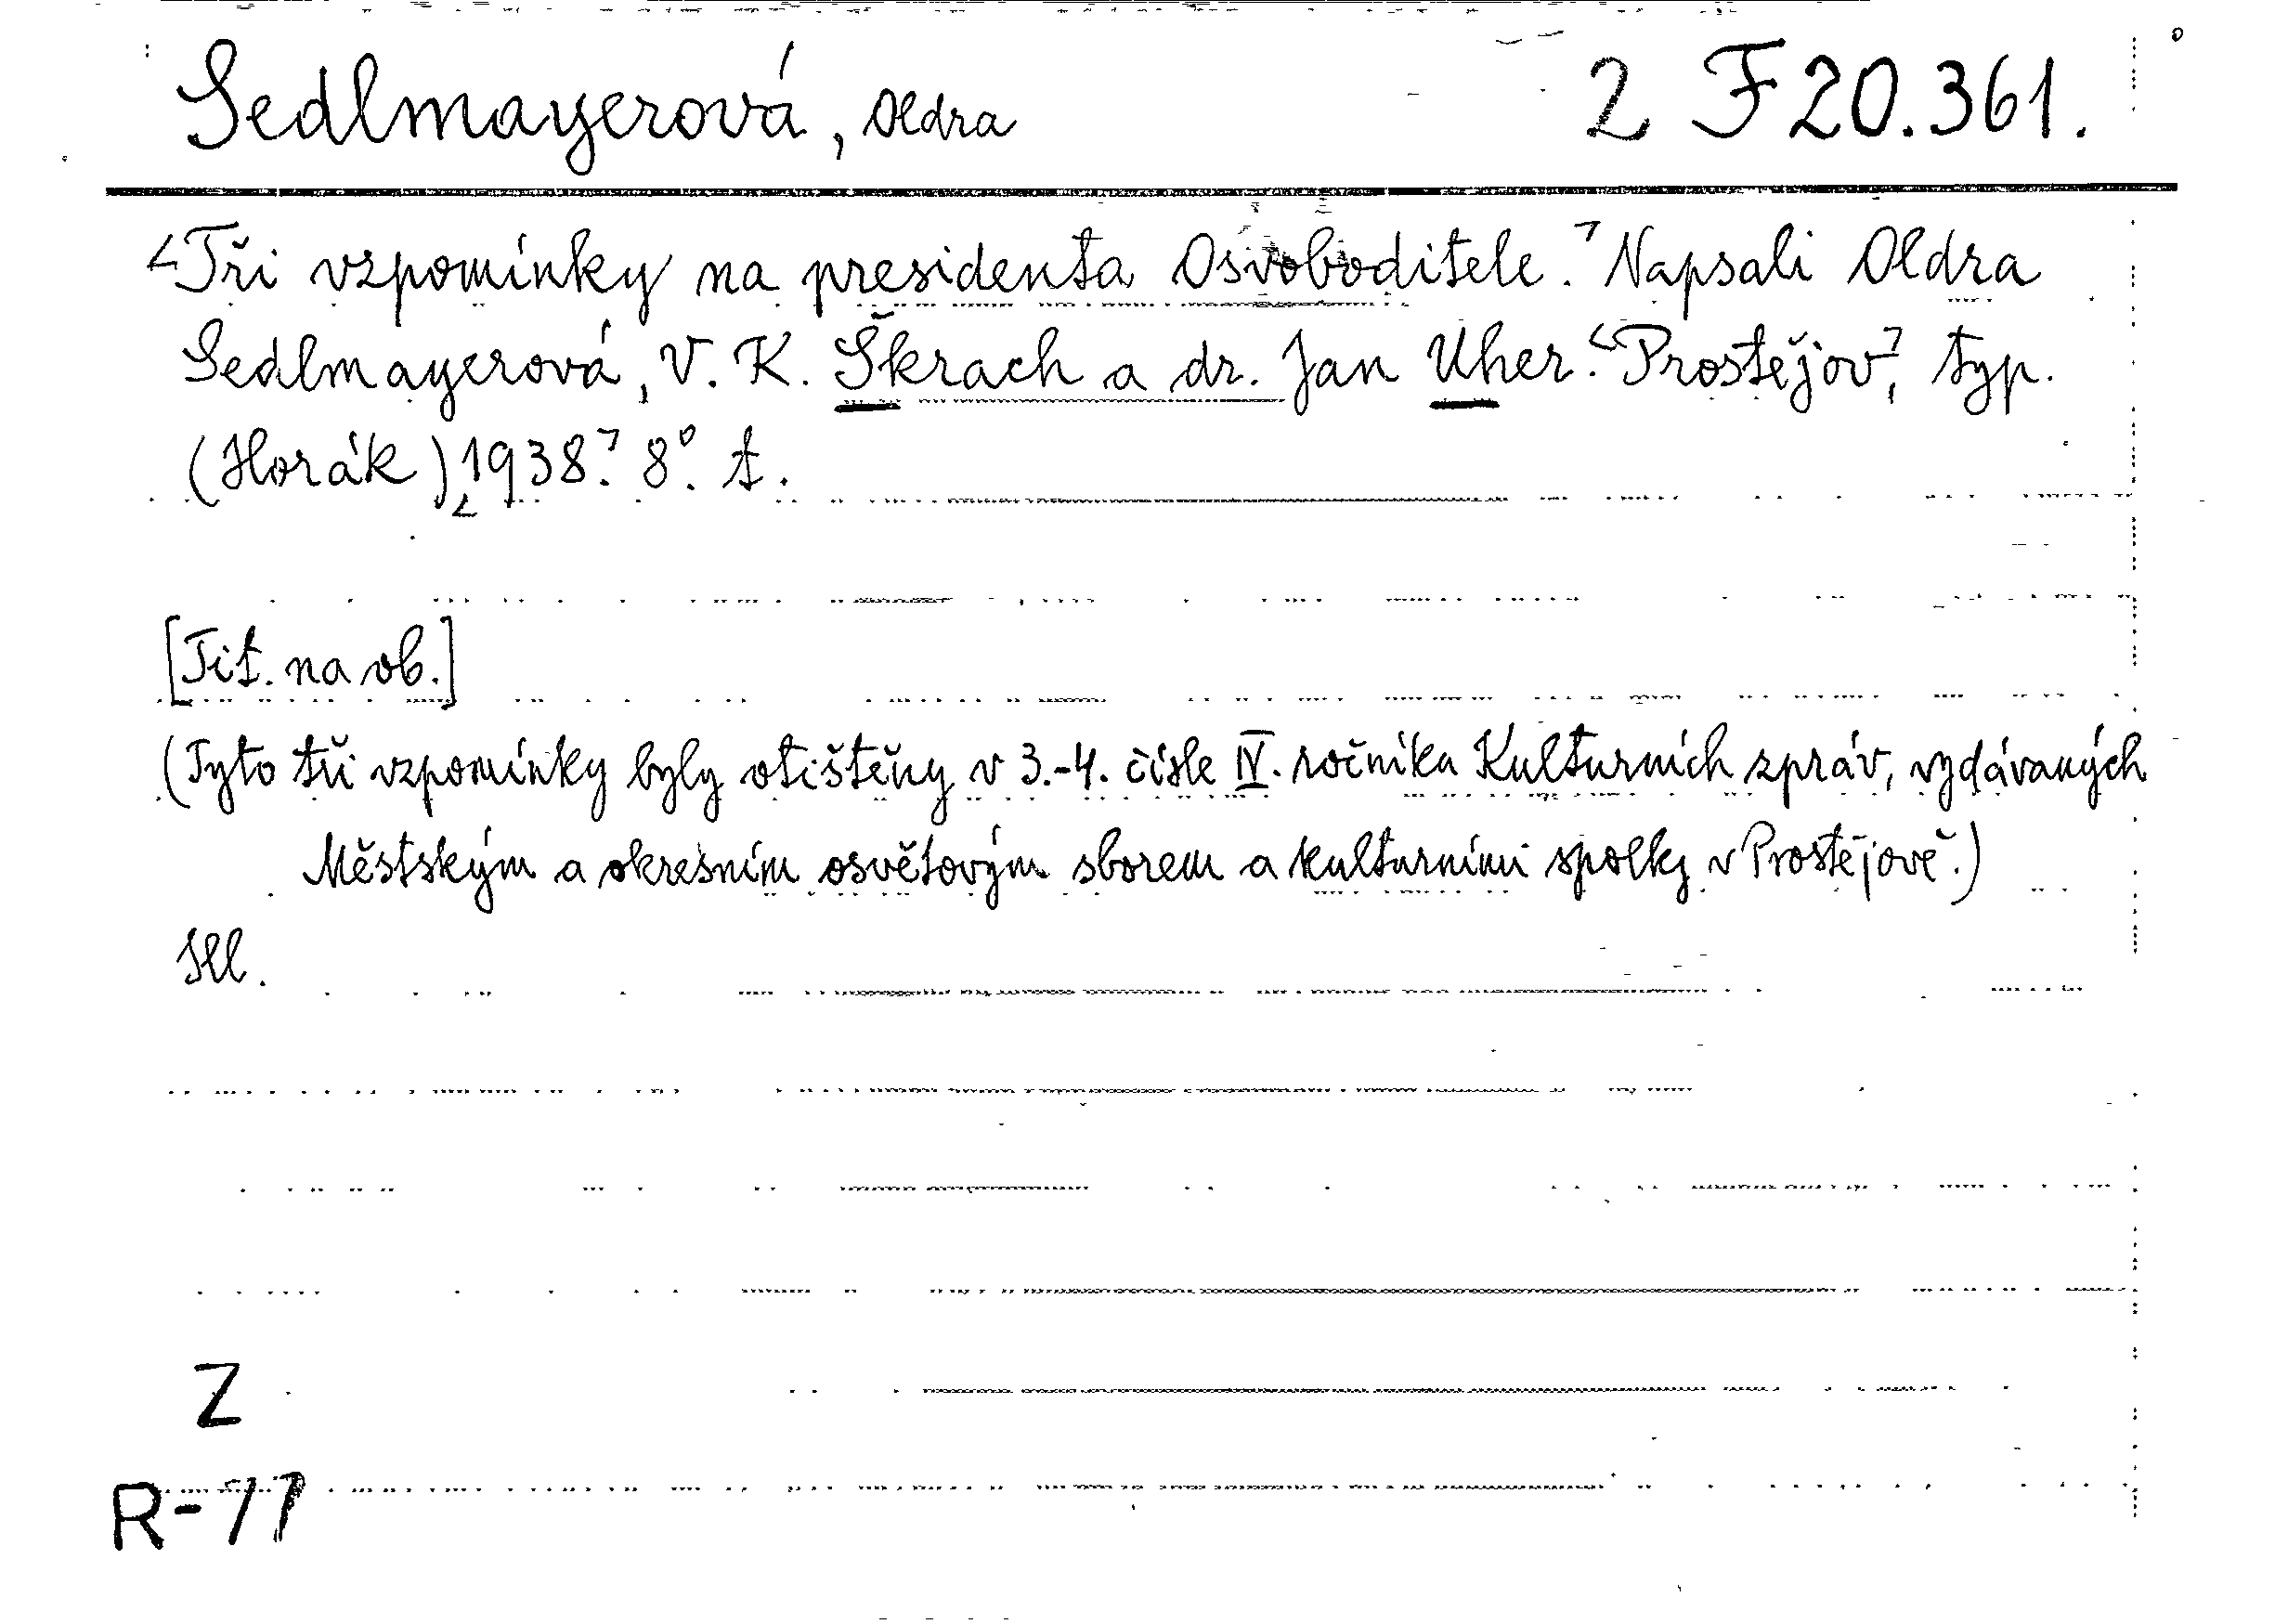 Sedlmayerová, Oldra 2 F 20.361.
<Tři vzpomínky na presidenta Osvoboditele.> Napsali Oldra
Sedlmayerová, V. K. Škrach a dr. Jan Uher. <Prostějov>, typ.
(Horák) <1938>. 8°. t.
[Tit. na ob.]
(Tyto tři vzpomínky byly otištěny v 3.-4. čísle IV. ročníka Kulturních zpráv, vydávaných
Městským a okresním osvětovým sborem a kulturními spolky v Prostějově.)
Ill.
Z
R-77